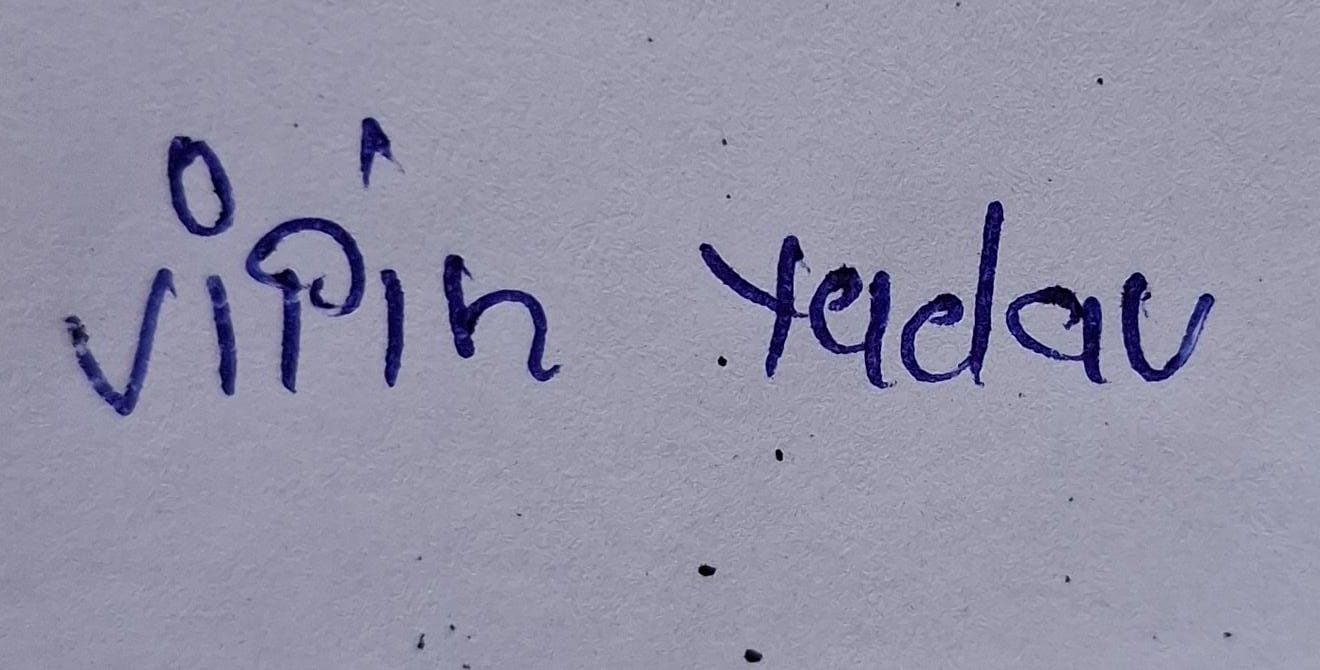 vipin yadav